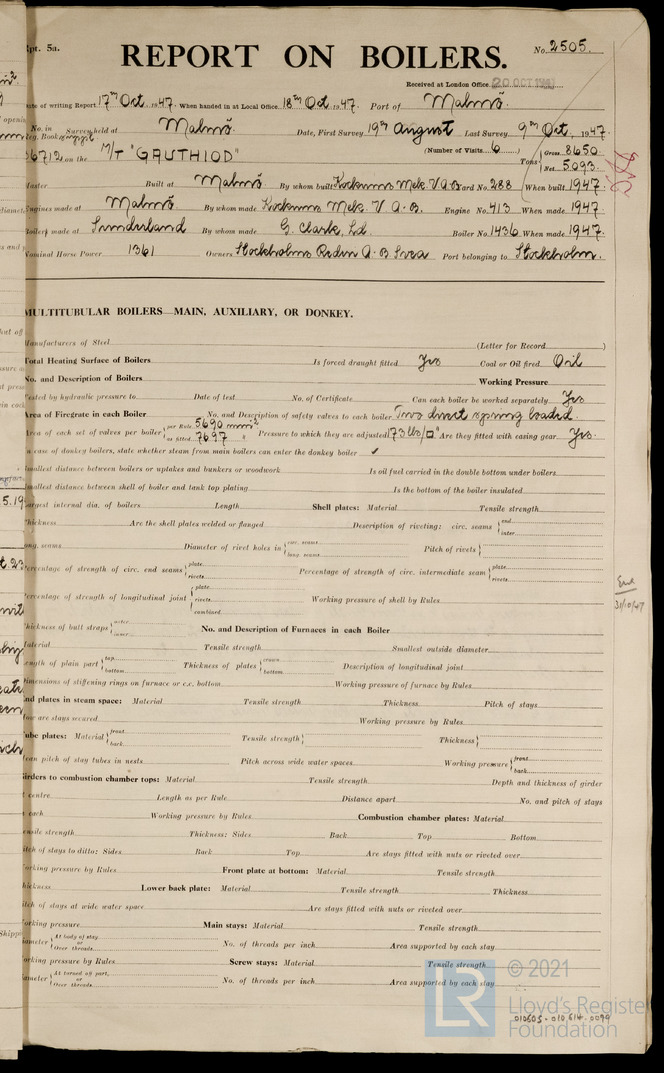 Rpt. 5a.
REPORT ON BOILERS.
No. 2505.
Received at London Office 20 OCT 1947
Date of writing Report 17th Oct. 1947. When handed in at Local Office 18th Oct 1947. Port of Malmö.
No. in Survey held at Malmö. Date, First Survey 19th August Last Survey 9th Oct, 1947.
Reg. Book.
36712 on the M/T "GAUTHIOD" (Number of Visits 6) Tons Gross 8650 Net 5093.
Master Built at Malmö By whom built Kockums Mek. V. A. B. Yard No. 288 When built 1947.
Engines made at Malmö By whom made Kockums Mek. V. A. B. Engine No. 413 When made 1947.
Boilers made at Sunderland By whom made G. Clark, Ld. Boiler No. 1436 When made 1947
Nominal Horse Power 1361 Owners Stockholms Rederi A. B Svea Port belonging to Stockholm.
MULTITUBULAR BOILERS—MAIN, AUXILIARY, OR DONKEY.
Manufacturers of Steel (Letter for Record )
Total Heating Surface of Boilers Is forced draught fitted Yes Coal or Oil fired Oil
No. and Description of Boilers Working Pressure
Tested by hydraulic pressure to Date of test No. of Certificate Can each boiler be worked separately Yes
Area of Firegrate in each Boiler No. and Description of safety valves to each boiler Two direct spring loaded.
Area of each set of valves per boiler per Rule 5690 mm² as fitted 7697 " Pressure to which they are adjusted 173 lbs/□" Are they fitted with easing gear Yes.
In case of donkey boilers, state whether steam from main boilers can enter the donkey boiler ✓
Smallest distance between boilers or uptakes and bunkers or woodwork Is oil fuel carried in the double bottom under boilers
Smallest distance between shell of boiler and tank top plating Is the bottom of the boiler insulated
Largest internal dia. of boilers Length Shell plates: Material Tensile strength
Thickness Are the shell plates welded or flanged Description of riveting: circ. seams end inter.
long. seams Diameter of rivet holes in circ. seams long. seams Pitch of rivets
Percentage of strength of circ. end seams plate rivets Percentage of strength of circ. intermediate seam plate rivets
Percentage of strength of longitudinal joint plate rivets combined Working pressure of shell by Rules
Thickness of butt straps outer inner No. and Description of Furnaces in each Boiler
Material Tensile strength Smallest outside diameter
Length of plain part top bottom Thickness of plates crown bottom Description of longitudinal joint
Dimensions of stiffening rings on furnace or c.c. bottom Working pressure of furnace by Rules
End plates in steam space: Material Tensile strength Thickness Pitch of stays
How are stays secured Working pressure by Rules
Tube plates: Material front back Tensile strength Thickness
Mean pitch of stay tubes in nests Pitch across wide water spaces Working pressure front back
Girders to combustion chamber tops: Material Tensile strength Depth and thickness of girder
at centre Length as per Rule Distance apart No. and pitch of stays
in each Working pressure by Rules Combustion chamber plates: Material
Tensile strength Thickness: Sides Back Top Bottom
Pitch of stays to ditto: Sides Back Top Are stays fitted with nuts or riveted over
Working pressure by Rules Front plate at bottom: Material Tensile strength
Thickness Lower back plate: Material Tensile strength Thickness
Pitch of stays at wide water space Are stays fitted with nuts or riveted over
Working pressure Main stays: Material Tensile strength
Diameter At body of stay or Over threads No. of threads per inch Area supported by each stay
Working pressure by Rules Screw stays: Material Tensile strength
Diameter At turned off part, or Over threads No. of threads per inch Area supported by each stay
LR © 2021
Lloyd's Register
Foundation
010605-010614-0099